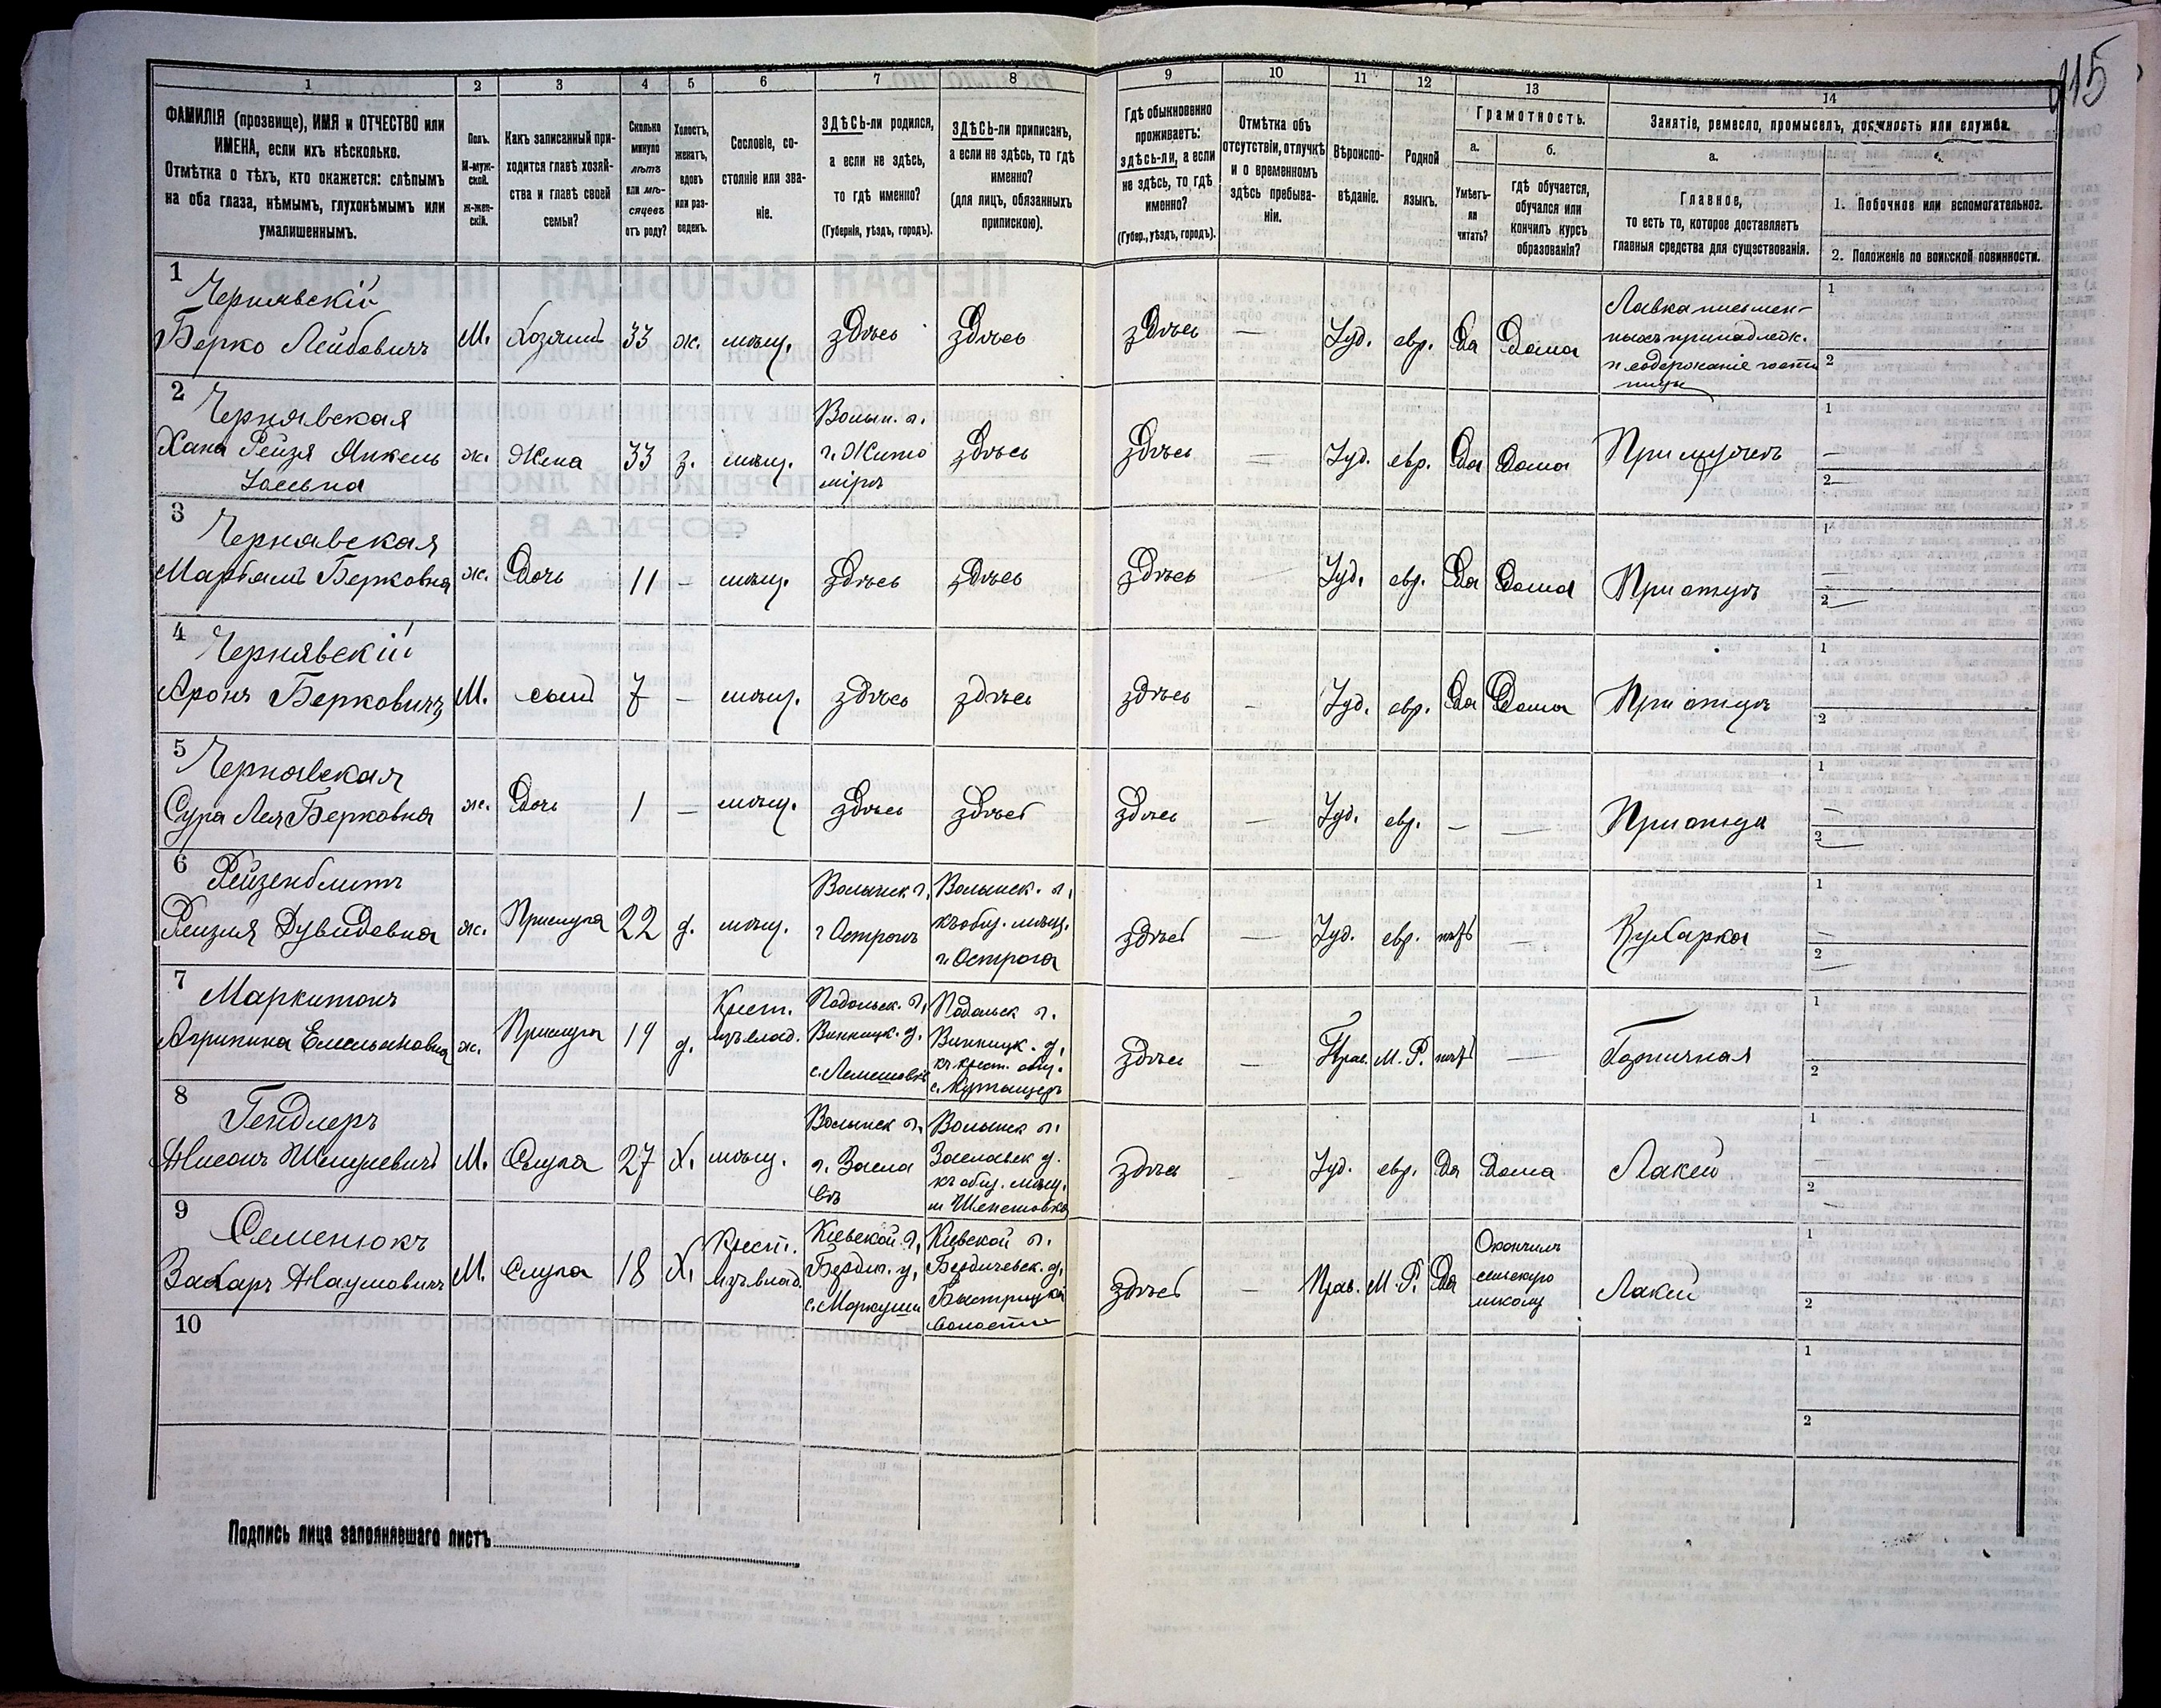 115
1 2 3 4 5 6 7 8 9 10 11 12 13 14
ФАМИЛІЯ (прозвище), ИМЯ и ОТЧЕСТВО или
ИМЕНА, если ихъ нѣсколько.
Отмѣтка о тѣхъ, кто окажется: слѣпымъ
на оба глаза, нѣмымъ, глухонѣмымъ или
умалишеннымъ.
Полъ.
М-муж-
ской.
ж-жен-
скій.
Какъ записанный при-
ходится главѣ хозяй-
ства и главѣ своей
семьи?
Сколько
минуло
лѣтъ
или мѣ-
сяцевъ
отъ роду?
Холостъ,
женатъ,
вдовъ
или раз-
веденъ.
Сословіе, со-
стояніе или зва-
ніе.
ЗДѢСЬ-ли родился,
а если не здѣсь,
то гдѣ именно?
(Губернія, уѣздъ, городъ).
ЗДѢСЬ-ли приписанъ,
а если не здѣсь, то гдѣ
именно?
(для лицъ, обязанныхъ
припискою).
Гдѣ обыкновенно
проживаетъ:
здѣсь-ли, а если
не здѣсь, то гдѣ
именно?
(Губер., уѣздъ, городъ).
Отмѣтка объ
отсутствіи, отлучкѣ
и о временномъ
здѣсь пребыва-
ніи.
Вѣроиспо-
вѣданіе.
Родной
языкъ.
Грамотность.
а.
Умѣетъ-
ли
читать?
б.
гдѣ обучается,
обучался или
кончилъ курсъ
образованія?
Занятіе, ремесло, промыселъ, должность или служба.
а.
Главное,
то есть то, которое доставляетъ
главныя средства для существованія.
1. Побочное или вспомогательное.
2. Положеніе по воинской повинности.
1
Чернявскій
Берко Лейбовичъ
М.
Хозяинъ
33
ж.
мѣщ.
здѣсь
здѣсь
здѣсь
—
Іуд.
евр.
Да
Дома
Лавка письмен-
ныхъ принадлеж.
и содержаніе гости
ницы
1
2
2
Чернявская
Хана Рейзя Янкель
Іосьвна
ж.
Жена
33
з.
мѣщ.
Волын. г.
г. Жито
міръ
здѣсь
здѣсь
—
Іуд.
евр.
Да
Дома
При мужѣ
1
—
2 —
3
Чернявская
Марьямъ Берковна
ж.
Дочь
11
—
мѣщ.
здѣсь
здѣсь
здѣсь
—
Іуд.
евр.
Да
Дома
При отцѣ
1
—
2 —
4
Чернявскій
Аронъ Берковичъ
М.
сынъ
7
—
мѣщ.
здѣсь
здѣсь
здѣсь
—
Іуд.
евр.
Да
Дома
При отцѣ
1
2
5
Чернявская
Сура Лея Берковна
ж.
Дочь
1
—
мѣщ.
здѣсь
здѣсь
здѣсь
—
Іуд.
евр.
—
—
При отцѣ
1
—
2 —
6
Рейзенблитъ
Рейзля Дувидовна
ж.
Прислуга
22
д.
мѣщ.
Волынск г.
г Острогъ
Волынск. г.
къ общ. мѣщ.
г. Острога
здѣсь
—
Іуд.
евр.
нѣтъ
—
Кухарка
1
—
2 —
7
Маркитонъ
Агрипина Емельяновна
ж.
Прислуга
19
д.
Крест.
изъ влад.
Подольск. г.
Винницк. у.
с. Лемешовка
Подольск г.
Винницк. у.
къ крест. общ.
здѣсь
—
Прав.
М. Р.
нѣтъ
—
Горничная
1
2
8
Гендлеръ
Нисонъ Шмулевичъ
М.
Слуга
27
Х.
мѣщ.
Волынск г.
г. Засла
въ
Волынск г.
Заславск у.
къ общ. мѣщ.
м Шепетовка
здѣсь
—
Іуд.
евр.
Да
Дома
Лакей
1
—
2 —
9
Семенюкъ
Захаръ Наумовичъ
М.
Слуга
18
Х.
Крест.
изъ влад.
Кіевской г.
Бердич. у.
с. Маркуши
Кіевской г.
Бердичевск. у.
Быстрицкой
волости
здѣсь
—
Прав.
М. Р.
Да
Окончилъ
сельскую
школу
Лакей
1
2
10
1
2
Подпись лица заполнявшаго листъ